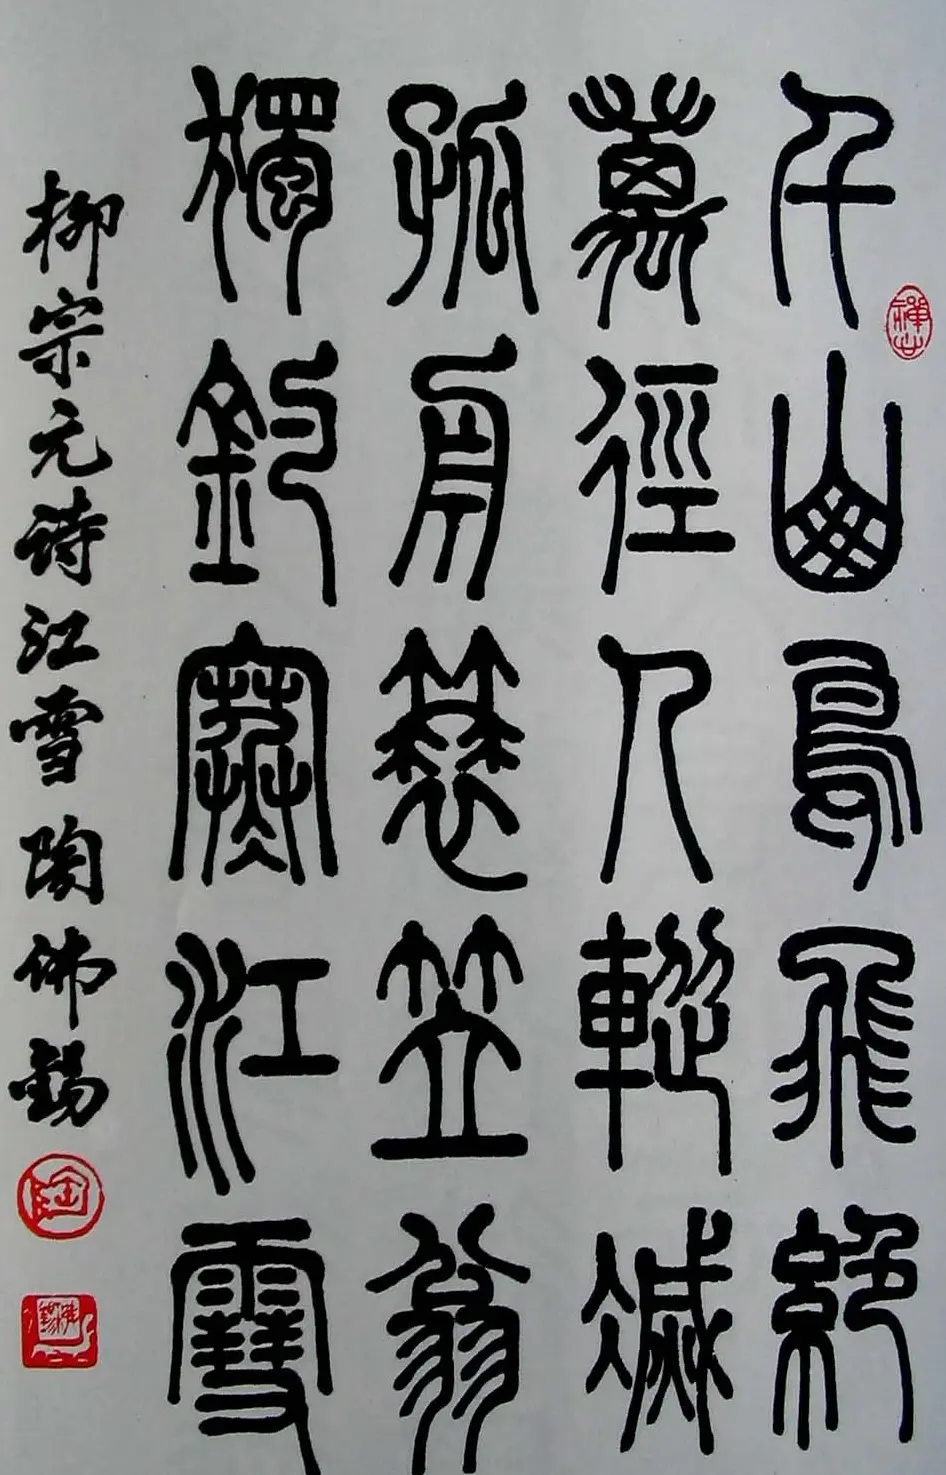 千山鳥飛絕
萬徑人蹤滅
孤舟蓑笠翁
獨釣寒江雪
柳宗元诗江雪 陶佛錫
陶